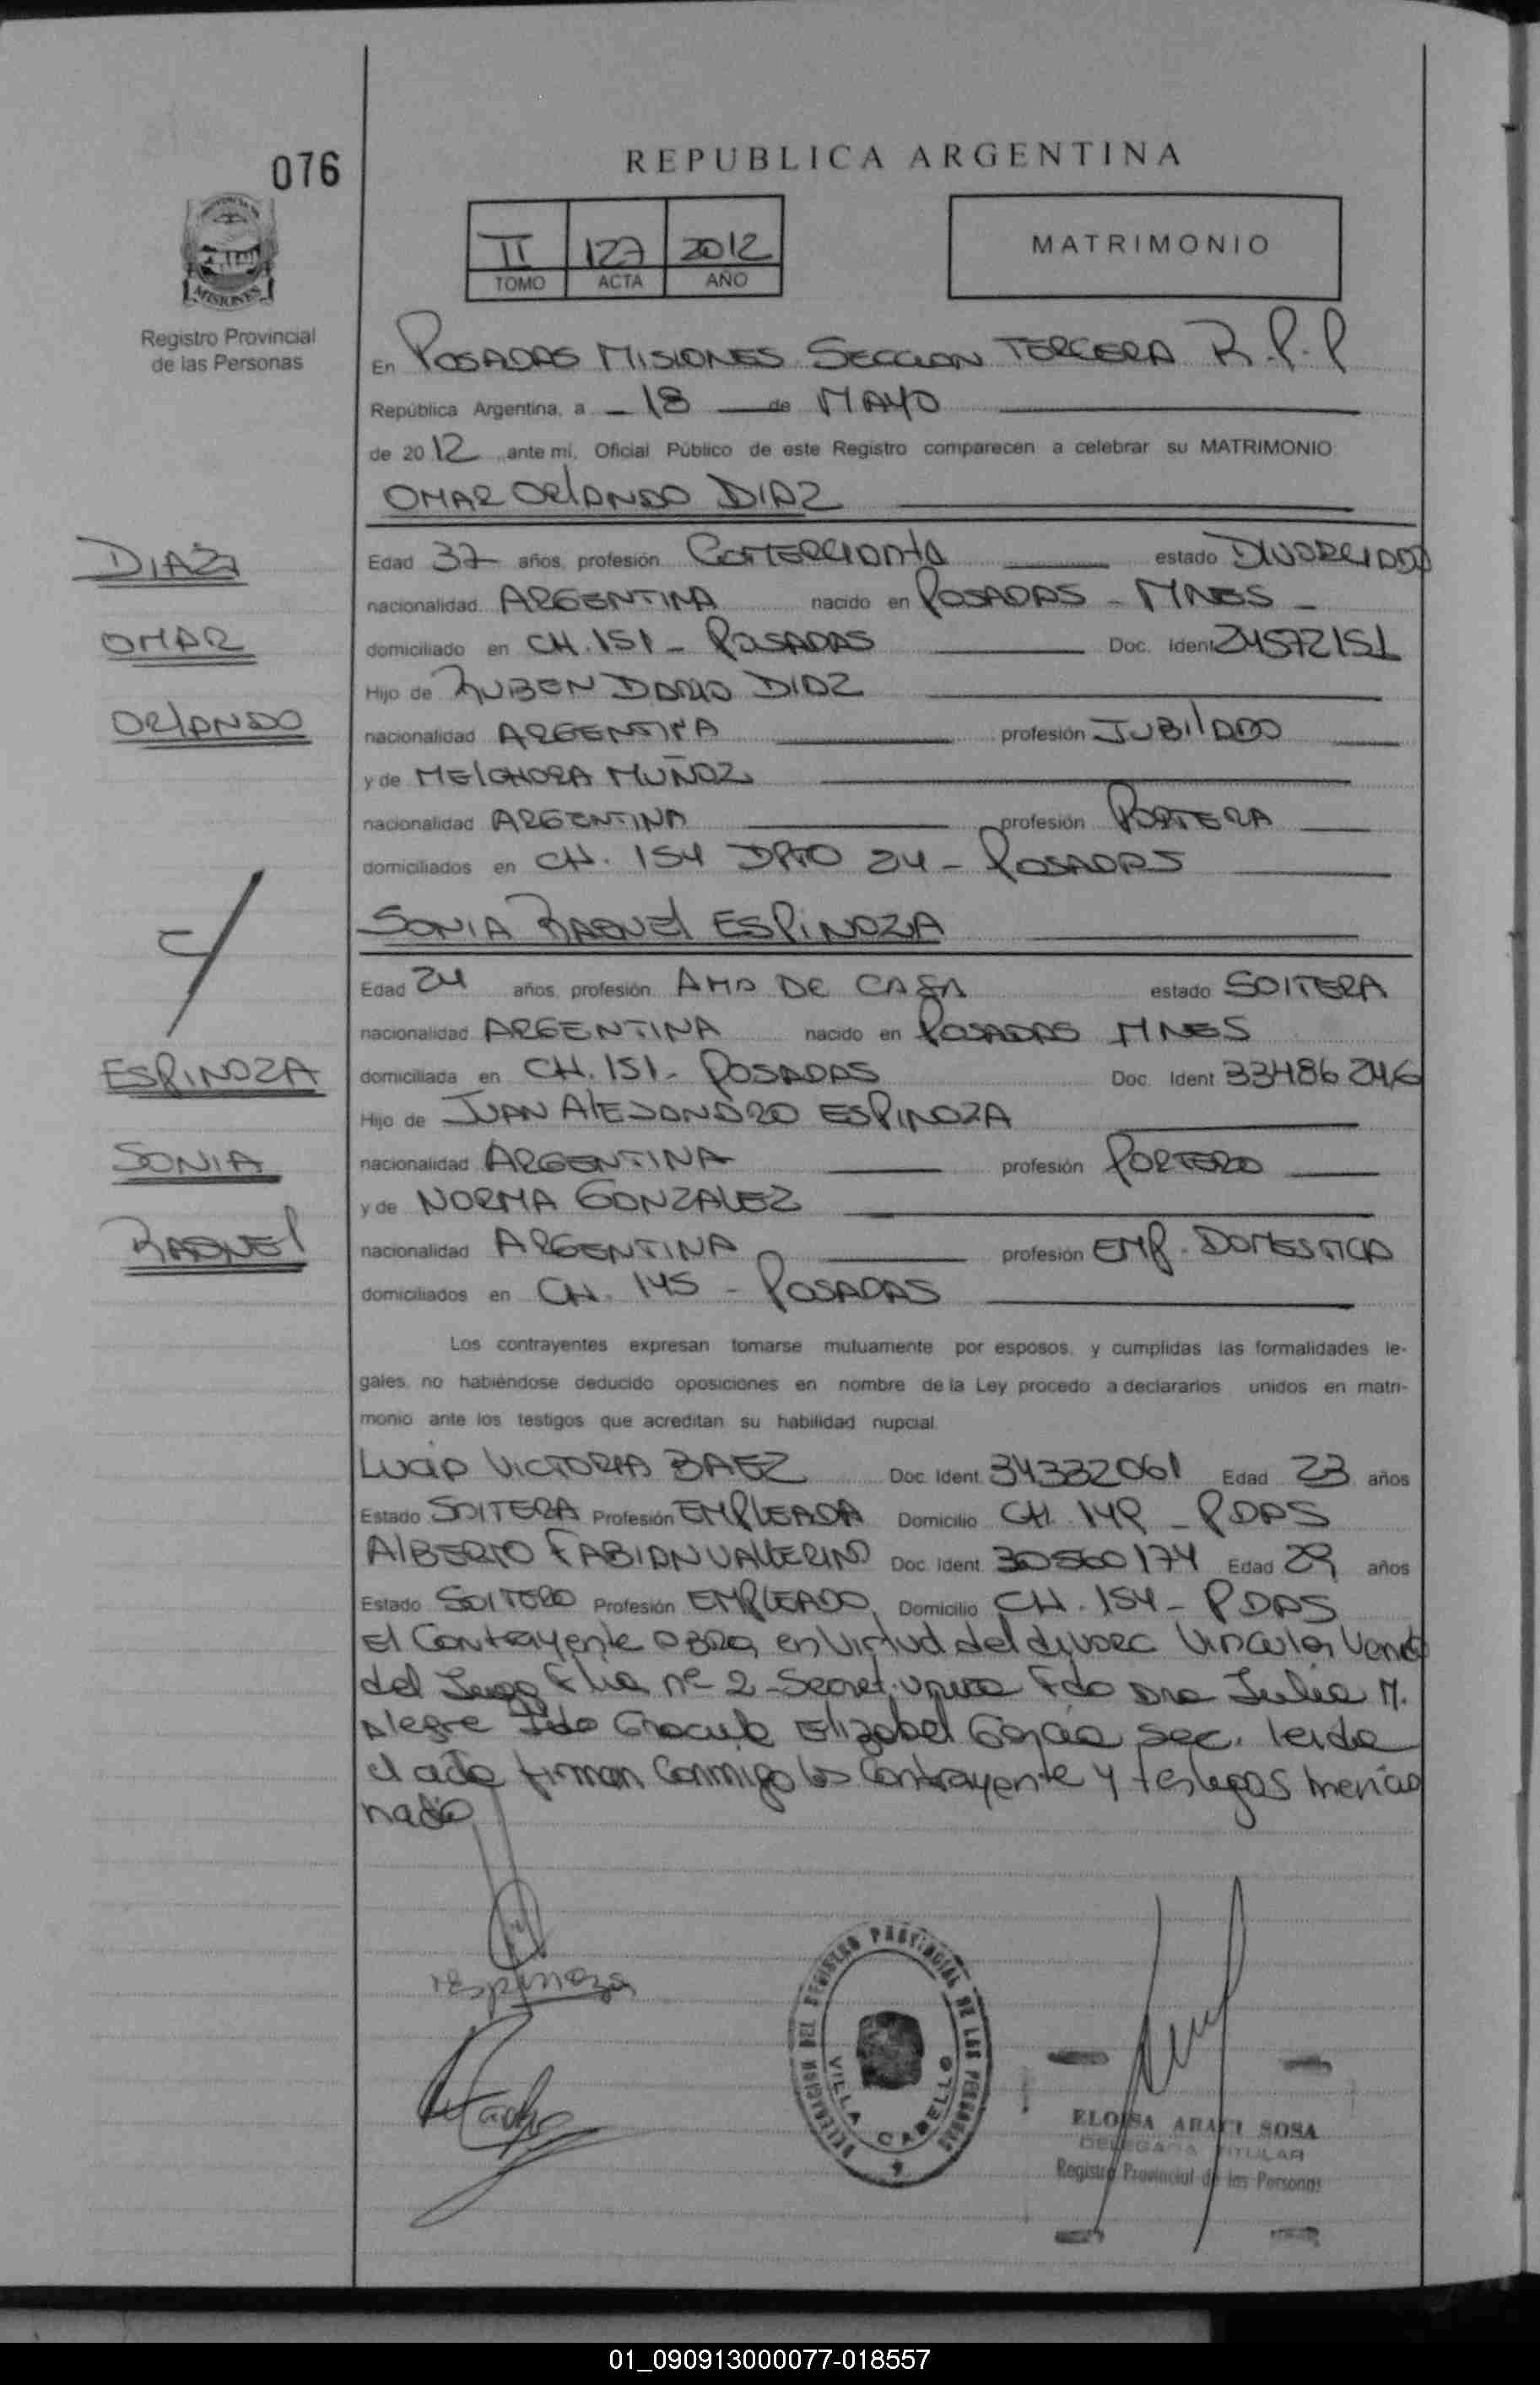 076
REPUBLICA ARGENTINA
II 127 2012
TOMO ACTA AÑO
MATRIMONIO
MISIONES
Registro Provincial
de las Personas
En POSADAS MISIONES SECCION TERCERA R.P.P
República Argentina, a - 18 de MAYO
de 2012 ante mi, Oficial Público de este Registro comparecen a celebrar su MATRIMONIO:
OMAR ORLANDO DIAZ
DIAZ
OMAR
ORLANDO
Edad 37 años, profesión COMERCIANTE estado DIVORCIADO
nacionalidad ARGENTINA nacido en POSADAS - MNES -
domiciliado en CH. 151 - POSADAS Doc. Ident 24572151
Hijo de RUBEN DARIO DIAZ
nacionalidad ARGENTINA profesión JUBILADO
y de MELCHORA MUÑOZ
nacionalidad ARGENTINA profesión PORTERA
domiciliados en CH. 154 DPTO 24 - POSADAS
SONIA RAQUEL ESPINOZA
Y
ESPINOZA
SONIA
RAQUEL
Edad 24 años, profesión AMA DE CASA estado SOLTERA
nacionalidad ARGENTINA nacido en POSADAS MNES
domiciliada en CH. 151 - POSADAS Doc. Ident 33486246
Hijo de JUAN ALEJANDRO ESPINOZA
nacionalidad ARGENTINA profesión PORTERO
y de NORMA GONZALEZ
nacionalidad ARGENTINA profesión EMP. DOMESTICA
domiciliados en CH. 145 - POSADAS
Los contrayentes expresan tomarse mutuamente por esposos, y cumplidas las formalidades le-
gales, no habiéndose deducido oposiciones en nombre de la Ley procedo a declararlos unidos en matri-
monio ante los testigos que acreditan su habilidad nupcial.
LUCIA VICTORIA BAEZ Doc. Ident. 34332061 Edad 23 años
Estado SOLTERA Profesión EMPLEADA Domicilio CH. 149 - PDAS
ALBERTO FABIAN VALLERINO Doc. Ident. 30560174 Edad 29 años
Estado SOLTERO Profesión EMPLEADO Domicilio CH. 154 - PDAS
El Contrayente obra en Virtud del divorc Vincular
del Juzg Flia nº 2 - Secret. unica Fdo Dra Julia M.
Alegre Fdo Graciela Elizabel Garcia Sec. leida
el acta firman Conmigo los Contrayente y testigos mencio
nado
Espinoza
DELEGACION DEL REGISTRO PROVINCIAL DE LAS PERSONAS
VILLA CABELLO
ELOISA ARACI SOSA
DELEGADA TITULAR
Registro Provincial de las Personas
01_090913000077-018557